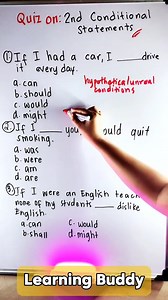 Quiz on: 2nd Conditional
Statements
1. If I had a car, I ___ drive
it every day.
a. can
b. should
c. would
d. might
hypothetical/unreal
conditions
2. If I ___ you, would quit
smoking.
a. was
b. were
c. am
d. are
3. If I were an English teach
none of my students ___ dislike
English.
a. can
b. shall
c. would
d. might
Learning Buddy